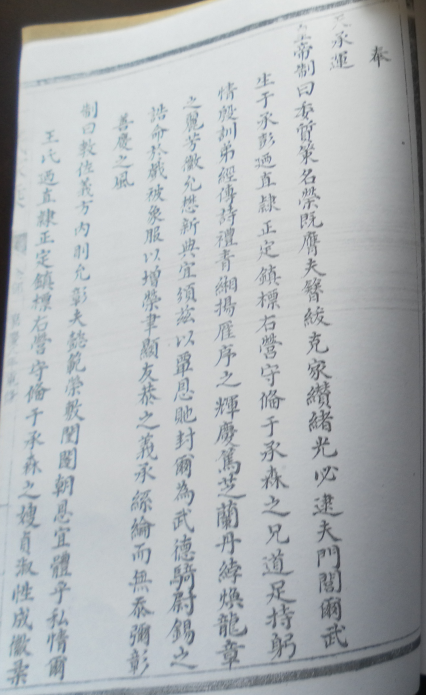 奉
天承運
皇帝制曰委質策名榮既膺夫簪紱克家纘緒光必逮夫門閭爾武
生于承彭迺直隸正定鎮標右營守俻于承森之兄道足持躬
情殷訓弟經傳詩禮青緗揚雁序之輝慶篤芝蘭丹綍煥龍章
之異芳徽允懋新典宜頒茲以覃恩貤封爾為武德騎尉錫之
誥命於戲被象服以增榮聿顯友恭之義承綵綸而無忝彌彰
善慶之風
制曰敦俗義方內則允彰夫懿範榮敷閨閫朝恩宜體乎私情爾
王氏迺直隸正定鎮標右營守俻于承森之嫂貞淑性成徽柔